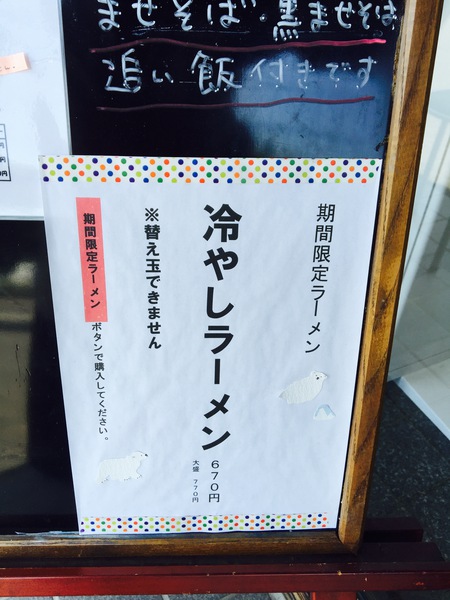 ませそば・黒ませそば
追い飯付きです
期間限定ラーメン
冷やしラーメン
670円
大盛 770円
※替え玉できません
期間限定ラーメン
ボタンで購入してください。